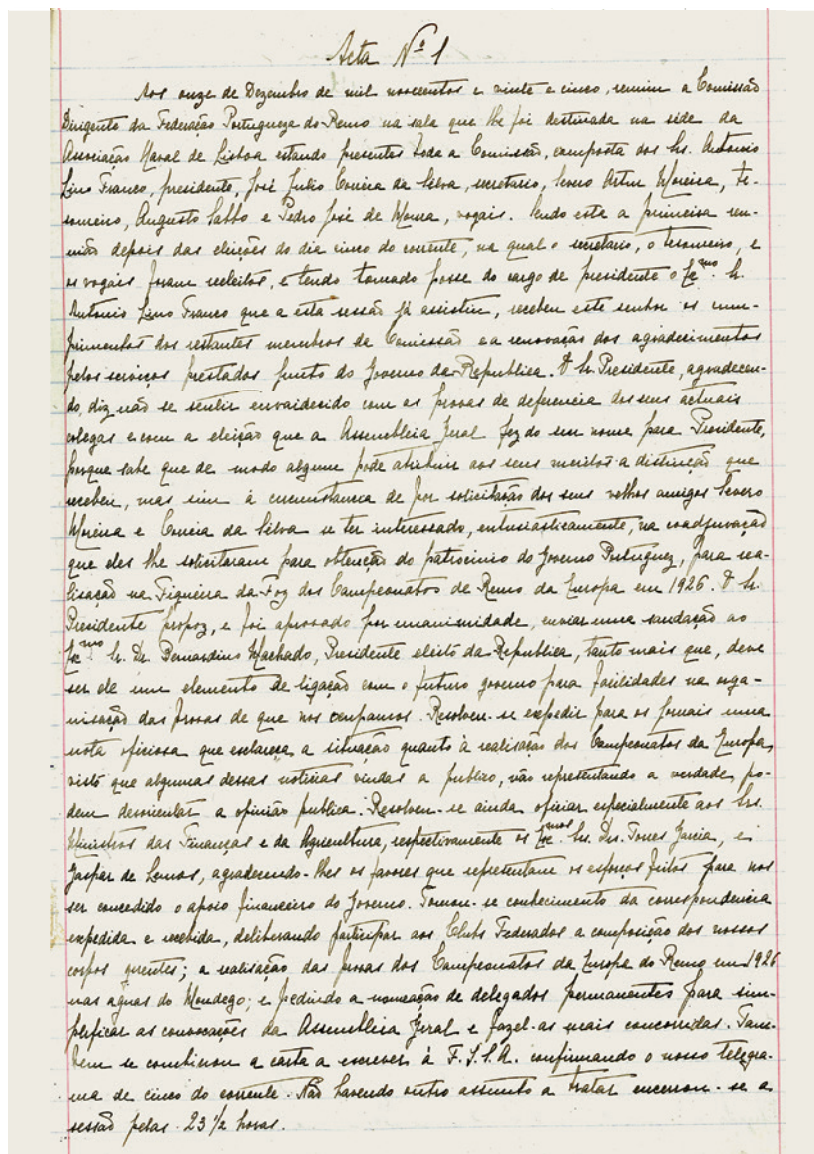 Acta Nº 1
Aos onze de Dezembro de mil novecentos e vinte e cinco, reuniu a Comissão
Dirigente da Federação Portugueza do Remo na sala que lhe foi destinada na séde da
Associação Naval de Lisboa estando presentes toda a Comissão, composta dos Srs. Antonio
Lino Franco, presidente, José Julio Correia da Silva, secretario, Severo Artur Moreira, te-
soureiro, Augusto Sabbo e Pedro José de Moura, vogais. Sendo esta a primeira reu-
nião depois das eleições do dia cinco do corrente, na qual o secretario, o tesoureiro, e
os vogais foram reeleitos, e tendo tomado posse do cargo de presidente o Exmo. Sr.
Antonio Lino Franco que a esta sessão já assistiu, recebeu este senhor os cum-
primentos dos restantes membros de Comissão e a renovação dos agradecimentos
pelos serviços prestados junto do Governo da Republica. O Sr. Presidente, agradecen-
do, diz não se sentir envaidecido com as provas de deferencia dos seus actuais
colegas e com a eleição que a Assembleia Geral fez do seu nome para Presidente,
porque sabe que de modo algum pode atribuir aos seus meritos a distinção que
recebeu, mas sim à circumstancia de por solicitação dos seus velhos amigos Severo
Moreira e Correia da Silva se ter interessado, entusiasticamente, na coadjuvação
que eles lhe solicitaram para obtenção do patrocinio do Governo Portuguez, para rea-
lisação na Figueira da Foz dos Campeonatos de Remo da Europa em 1926. O Sr.
Presidente propoz, e foi aprovado por unanimidade, enviar uma saudação ao
Exmo. Sr. Dr. Bernardino Machado, Presidente eleito da Republica, tanto mais que, deve
ser ele um elemento de ligação com o futuro governo para facilidades na orga-
nisação das provas de que nos ocupamos. Resolveu-se expedir para os jornais uma
nota oficiosa que esclareça a situação quanto à realisação dos Campeonatos da Europa,
visto que algumas dessas noticias vindas a publico, não representando a verdade, po-
dem desvirtuar a opinião publica. Resolveu-se ainda oficiar especialmente aos Srs.
Ministros das Finanças e da Agricultura, respectivamente os Exmos. Srs. Drs. Torres Garcia, e
Gaspar de Lemos, agradecendo-lhes os favores que representam os esforços feitos para nos
ser concedido o apoio financeiro do Governo. Tomou-se conhecimento da correspondencia
expedida e recebida, deliberando participar aos Clubs Federados a composição dos nossos
corpos gerentes; a realisação das provas dos Campeonatos da Europa do Remo em 1926
nas aguas do Mondego; e pedindo a nomeação de delegados permanentes para sim-
plificar as convocações da Assembleia Geral e fazel-as mais concorridas. Tam-
bem se combinou a carta a escrever à F.I.S.A. confirmando o nosso telegra-
ma de cinco do corrente. Não havendo outro assunto a tratar encerrou-se a
sessão pelas 23 1/2 horas.